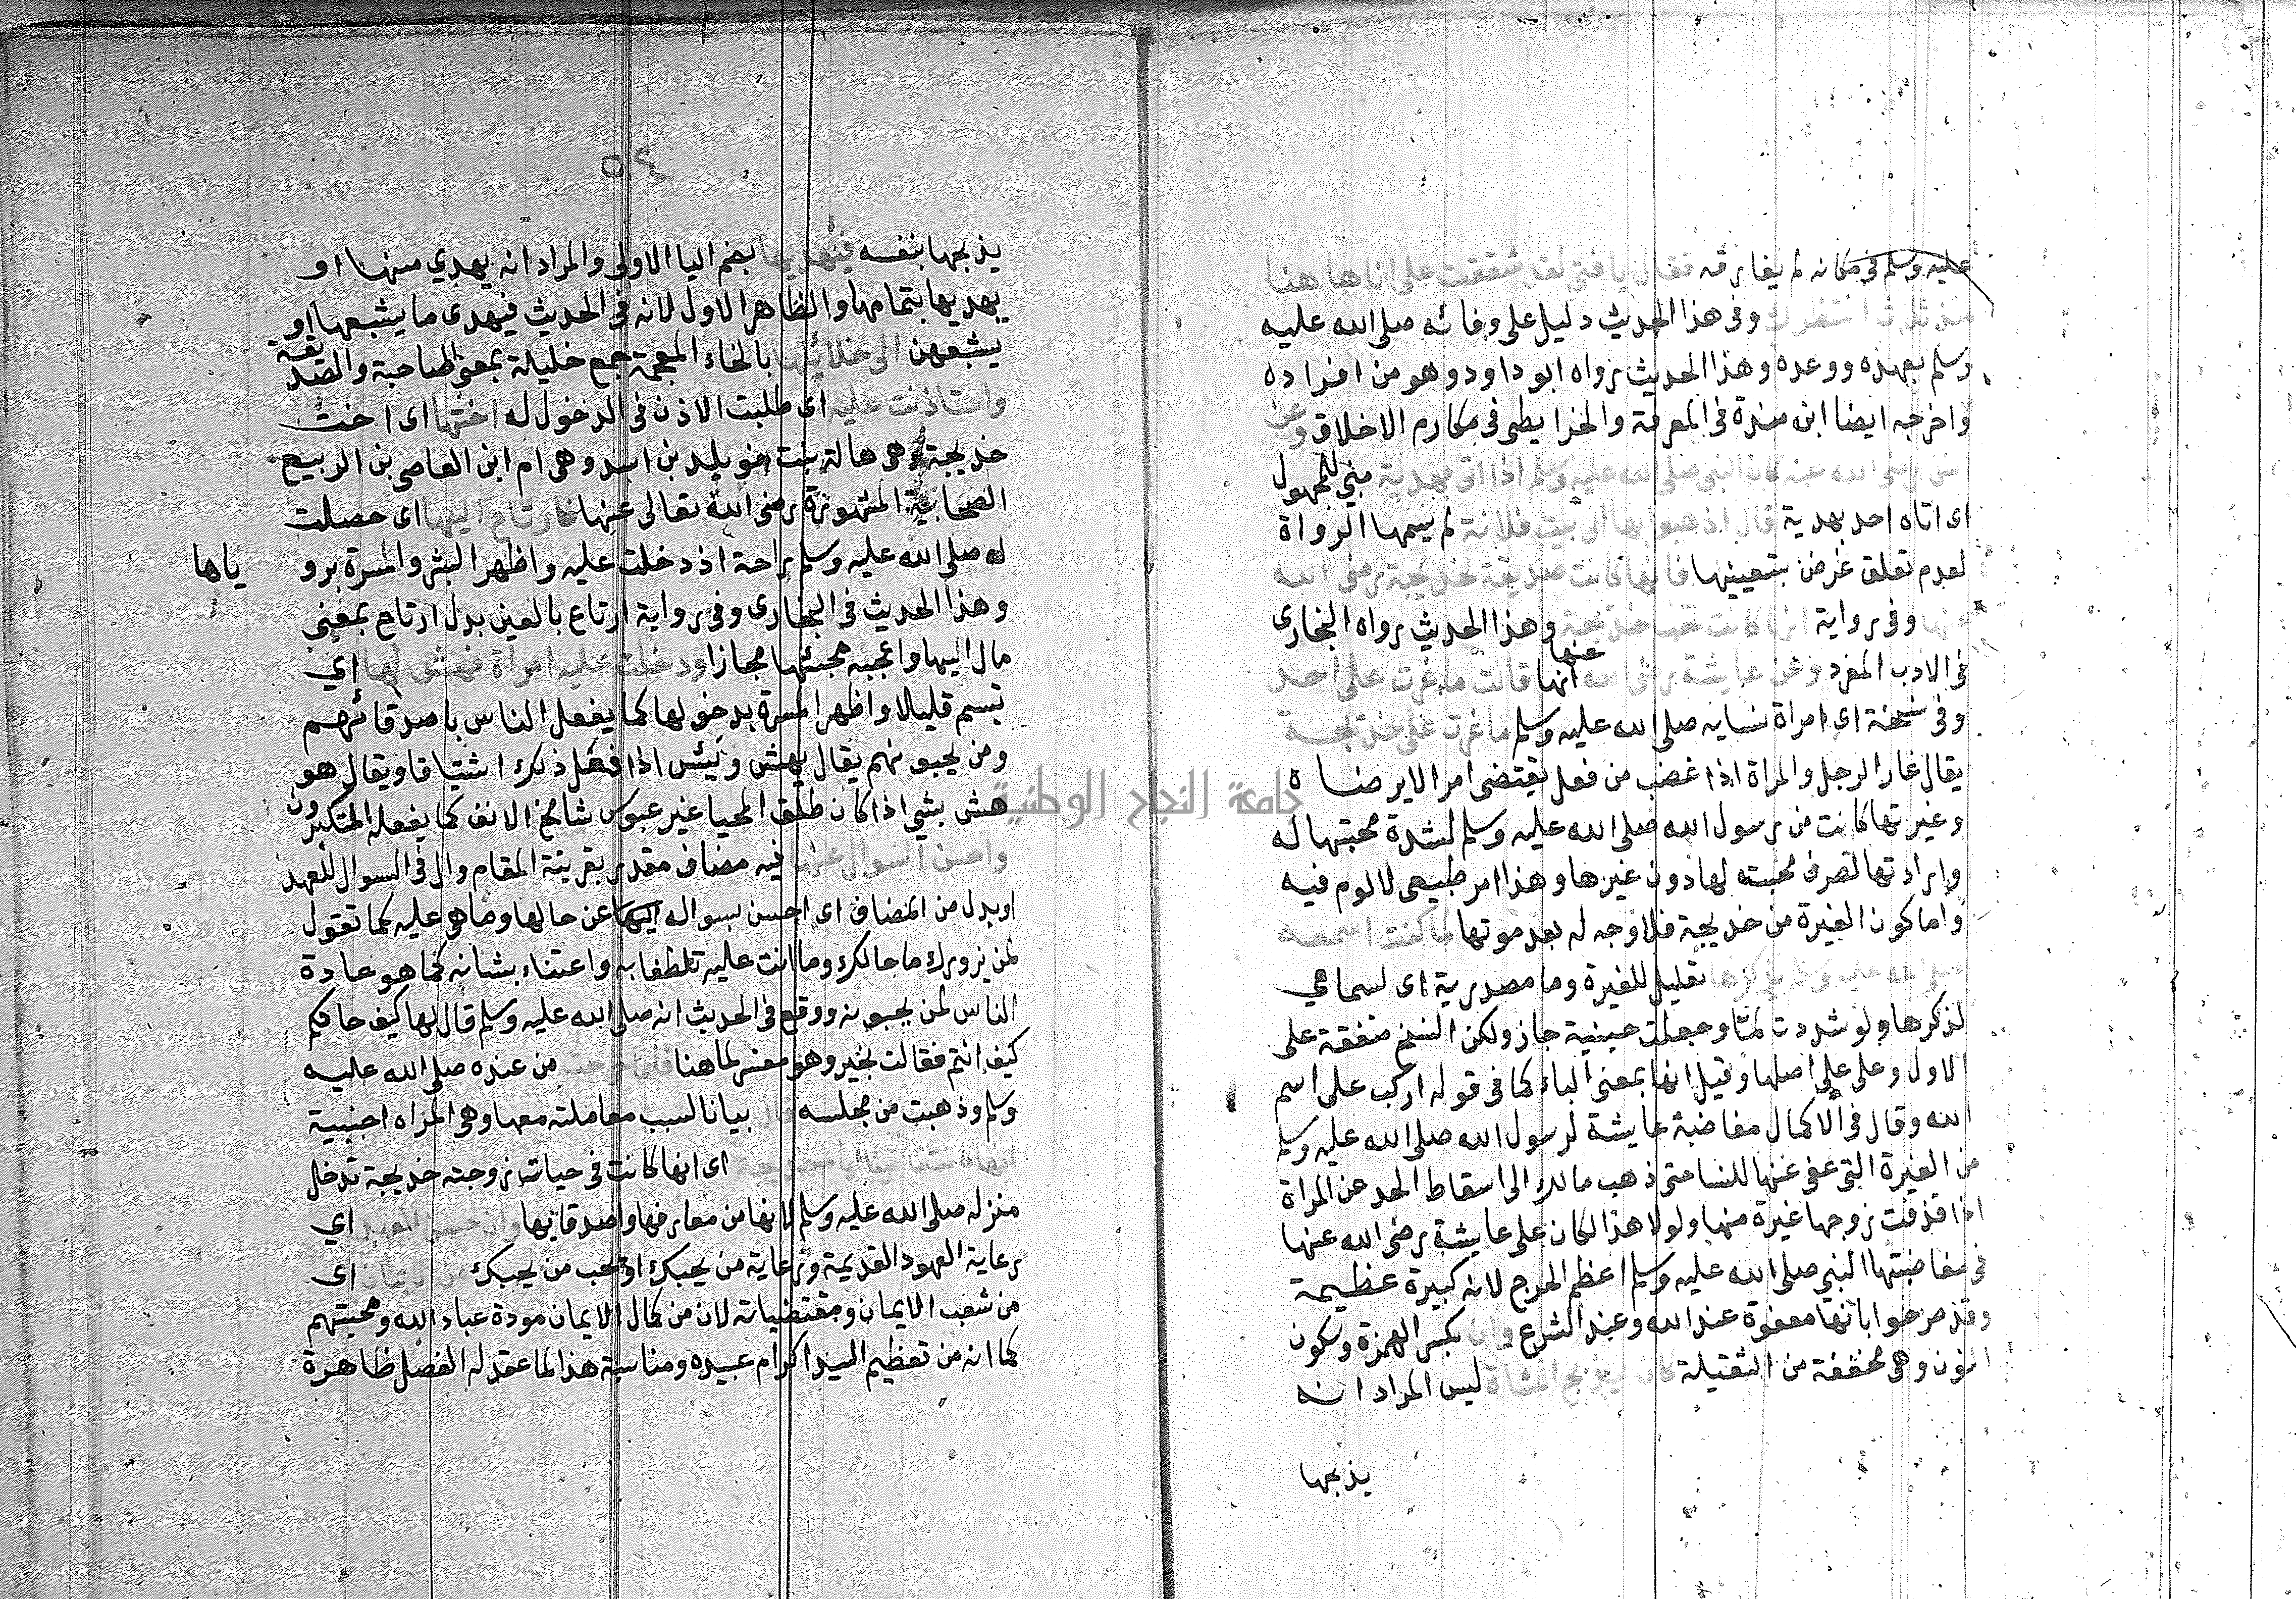 عليه وسلم في مكانه لم يفارقه فقال يا فتى لقد شققت علي انا هاهنا
منذ ثلاث انتظرك وفي هذا الحديث دليل على وفائه صلى الله عليه
وسلم بعهده ووعده وهذا الحديث رواه ابو داود وهو من افراده
واخرجه ايضا ابن مندة في المعرفة والخرايطي في مكارم الاخلاق وعن
انس رضى الله عنه كان النبي صلى الله عليه وسلم اذا اتى بهدية مبني للمجهول
اى اتاه احد بهدية قال اذهبوا بها الى بيت فلانة لم يسمها الرواة
لعدم تعلق غرض بتعيينها فانها كانت صديقة لخديجة رضى الله
عنها وفي رواية انها كانت تحب خديجة وهذا الحديث رواه البخارى
في الادب المفرد وعن عايشة رضى الله عنها انها قالت ما غرت على احد
وفي نسخة اى امراة نسايه صلى الله عليه وسلم ما غرت على خديجة
يقال غار الرجل والمراة اذا غضب من فعل يقتضى امرا لا يرضاه
وغيرتها كانت من رسول الله صلى الله عليه وسلم لشدة محبتها له
وارادتها لصرف محبته لها دون غيرها وهذا امر طبيعى لا لوم فيه
واما كون الغيرة من خديجة فلا وجه له بعد موتها لما كنت اسمعه
صلى الله عليه وسلم يذكرها تعليل للغيرة وما مصدرية اى لسماعي
لذكرها ولو شددت لما وجعلت حينية جاز ولكن النسخ متفقة على
الاول وعلى على اصلها وقيل انها بمعنى الباء كما في قوله اركب على اسم
الله وقال في الاكمال مغاضبة عايشة لرسول الله صلى الله عليه وسلم
من الغيرة التي عفى عنها للنسا حتى ذهب مالك الى اسقاط الحد عن المراة
اذا قذفت زوجها غيرة منها ولولا هذا لكان على عايشة رضى الله عنها
في مغاضبتها النبي صلى الله عليه وسلم اعظم الحرج لانه كبيرة عظيمة
وقد صرحوا بانها معفوة عند الله وعند الشرع وان بكسر الهمزة وسكون
النون وهى مخففة من الثقيلة كان ليذبح الشاة ليس المراد انه
يذبحها
٢٥
يذبحها بنفسه فيهديها بضم اليا الاولى والمراد انه يهدي منها او
يهديها بتمامها والظاهر الاول لانه في الحديث فيهدى ما يشبعها او
يشبعهن الى خلائلها بالخاء المعجمة جمع خليلة بمعنى صاحبة والصديقة
واستاذنت عليه اى طلبت الاذن في الدخول له اختها اى اخت
خديجة وهى هالة بنت خويلد بن اسد وهى ام ابن العاصى بن الربيع
الصحابية المشهورة رضى الله تعالى عنها فارتاح اليها اى حصلت
له صلى الله عليه وسلم راحة اذ دخلت عليه واظهر البشر والمسرة برو
ياها
وهذا الحديث في البخارى وفي رواية ارتاع بالعين بدل ارتاح بمعنى
مال اليها واعجبه مجيئها مجازا ودخلت عليه امراة فهش لها اي
تبسم قليلا واظهر المسرة بدخولها كما يفعل الناس باصدقائهم
ومن يحبونهم يقال يهش ويبش اذا فعل ذلك اشتياقا ويقال هو
هش بشي اذا كان طلق المحيا غير عبوس شامخ الانف كما يفعله المتكبرون
واحسن السوال عنها فيه مضاف مقدر بقرينة المقام وال في السوال للعهد
او بدل من المضاف اى احسن بسواله اليها عن حالها وما هى عليه كما تقول
لمن يزورك ما حالك وما انت عليه تلطفا به واعتناء بشانه كما هو عادة
الناس لمن يحبونه ووقع في الحديث انه صلى الله عليه وسلم قال لها كيف حالكم
كيف انتم فقالت بخير وهو مفسر لما هنا فلما خرجت من عنده صلى الله عليه
وسلم وذهبت من مجلسه قال بيانا لسبب معاملته معها وهى امراه اجنبية
انها كانت تاتينا ايام خديجة اى انها كانت في حيات زوجته خديجة تدخل
منزله صلى الله عليه وسلم لانها من معارفها واصدقايها وان حسن العهد اي
رعاية العهود القديمة ورعاية من يحبك او يحب من يحبك من الايمان اى
من شعب الايمان ومقتضياته لان من كمال الايمان مودة عباد الله ومحبتهم
كما انه من تعظيم السيد اكرام عبيده ومناسبة هذا لما عقد له الفصل ظاهرة
جامعة النجاح الوطنية